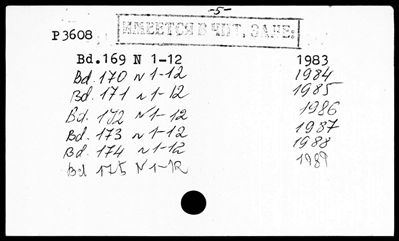 -5-
ИМЕЕТСЯ В ЧИТ. ЗАЛЕ
P3608
Bd.169 N 1-12 1983
Bd. 170 N 1-12 1984
Bd. 171 N 1-12 1985
Bd. 172 N 1-12 1986
Bd. 173 N 1-12 1987
Bd. 174 N 1-12 1988
Bd 175 N 1-12 1989